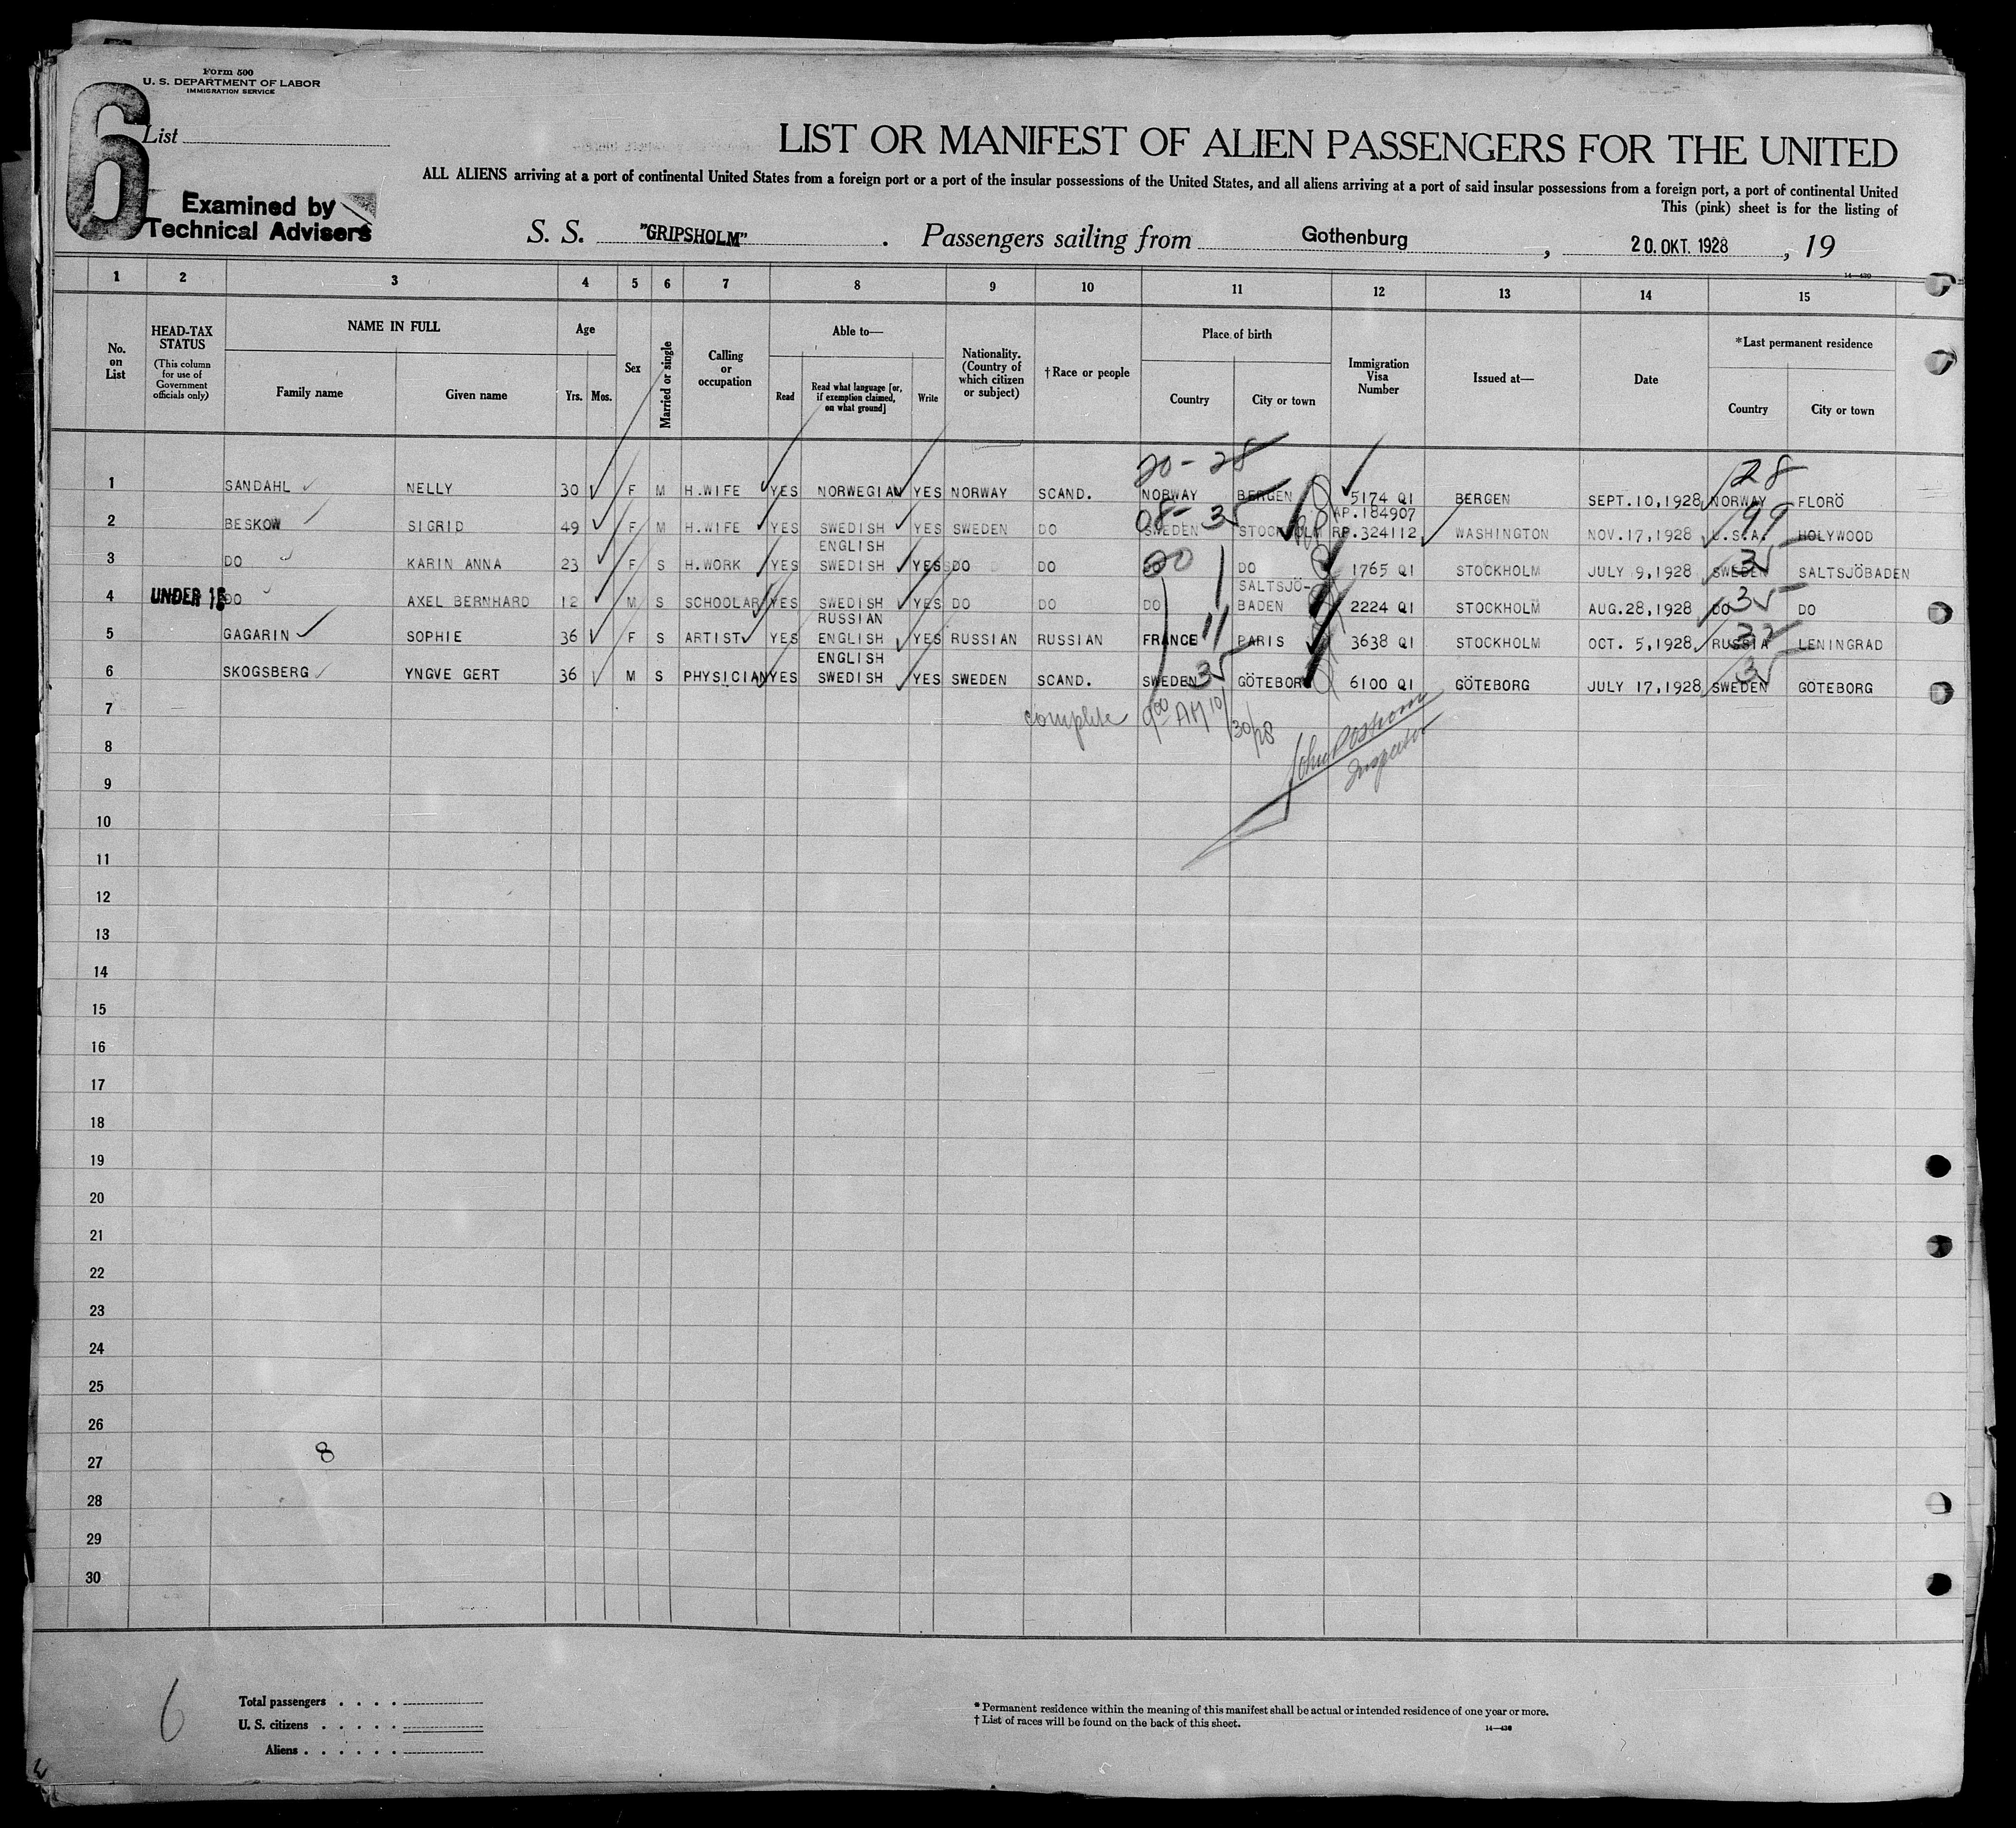 Form 500
U. S. DEPARTMENT OF LABOR
IMMIGRATION SERVICE
6
List
Examined by
Technical Advisers
LIST OR MANIFEST OF ALIEN PASSENGERS FOR THE UNITED
ALL ALIENS arriving at a port of continental United States from a foreign port or a port of the insular possessions of the United States, and all aliens arriving at a port of said insular possessions from a foreign port, a port of continental United
This (pink) sheet is for the listing of
S. S. "GRIPSHOLM" . Passengers sailing from Gothenburg , 20. OKT. 1928 , 19
14—430
1 2 3 4 5 6 7 8 9 10 11 12 13 14 15
No. on List
HEAD-TAX STATUS
(This column for use of Government officials only)
NAME IN FULL
Family name Given name
Age
Yrs. Mos.
Sex
Married or single
Calling or occupation
Able to—
Read Read what language [or, if exemption claimed, on what ground] Write
Nationality. (Country of which citizen or subject)
†Race or people
Place of birth
Country City or town
Immigration Visa Number
Issued at—
Date
*Last permanent residence
Country City or town
20 - 28 28
1 SANDAHL NELLY 30 F M H.WIFE YES NORWEGIAN YES NORWAY SCAND. NORWAY BERGEN 5174 QI BERGEN SEPT.10,1928 NORWAY FLORÖ
08- 35 AP.184907 99
2 BESKOW SIGRID 49 F M H.WIFE YES SWEDISH YES SWEDEN DO SWEDEN STOCKHOLM RP.324112 WASHINGTON NOV.17,1928 U.S.A. HOLYWOOD
ENGLISH
3 DO KARIN ANNA 23 F S H.WORK YES SWEDISH YES DO DO 20 DO 1765 QI STOCKHOLM JULY 9,1928 SWEDEN 35 SALTSJÖBADEN
SALTSJÖ-
4 UNDER 16 DO AXEL BERNHARD 12 M S SCHOOLAR YES SWEDISH YES DO DO DO BADEN 2224 QI STOCKHOLM AUG.28,1928 DO 35 DO
RUSSIAN
5 GAGARIN SOPHIE 36 F S ARTIST YES ENGLISH YES RUSSIAN RUSSIAN FRANCE 11 PARIS 3638 QI STOCKHOLM OCT. 5,1928 RUSSIA 32 LENINGRAD
ENGLISH
6 SKOGSBERG YNGVE GERT 36 M S PHYSICIAN YES SWEDISH YES SWEDEN SCAND. SWEDEN 35 GÖTEBORG 6100 QI GÖTEBORG JULY 17,1928 SWEDEN 35 GÖTEBORG
7 complete 9 00 AM 10/30/28
8 Inspector
9
10
11
12
13
14
15
16
17
18
19
20
21
22
23
24
25
26
8
27
28
29
30
6
Total passengers . . . .
U. S. citizens . . . . .
Aliens . . . . . .
* Permanent residence within the meaning of this manifest shall be actual or intended residence of one year or more.
† List of races will be found on the back of this sheet.
14—430